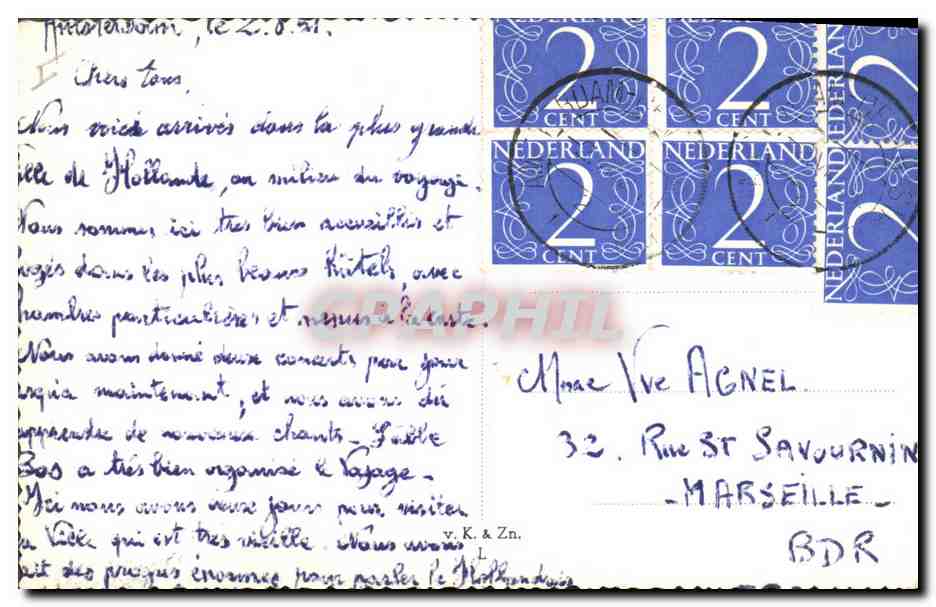 Amsterdam, le 2.8.51.
Chers tous,
Nous voici arrivés dans la plus grande
ville de Hollande, au milieu du voyage.
Nous sommes ici très bien accueillis et
logés dans les plus beaux hôtels, avec
chambres particulières et menus à la carte.
Nous avons donné deux concerts par jour
jusqu'à maintenant, et nous avons dû
apprendre de nouveaux chants - l'abbé
Bos a très bien organisé le Voyage -
Ici nous avons deux jours pour visiter
la Ville qui est très vieille. Nous avons
fait des progrès énormes pour parler le Hollandais
NEDERLAND
2
CENT
NEDERLAND
2
CENT
NEDERLAND
2
NEDERLAND
2
CENT
NEDERLAND
2
CENT
NEDERLAND
2
GRAPHIL
Mme Vve AGNEL
32. Rue ST SAVOURNIN
- MARSEILLE -
BDR
v. K. & Zn.
L